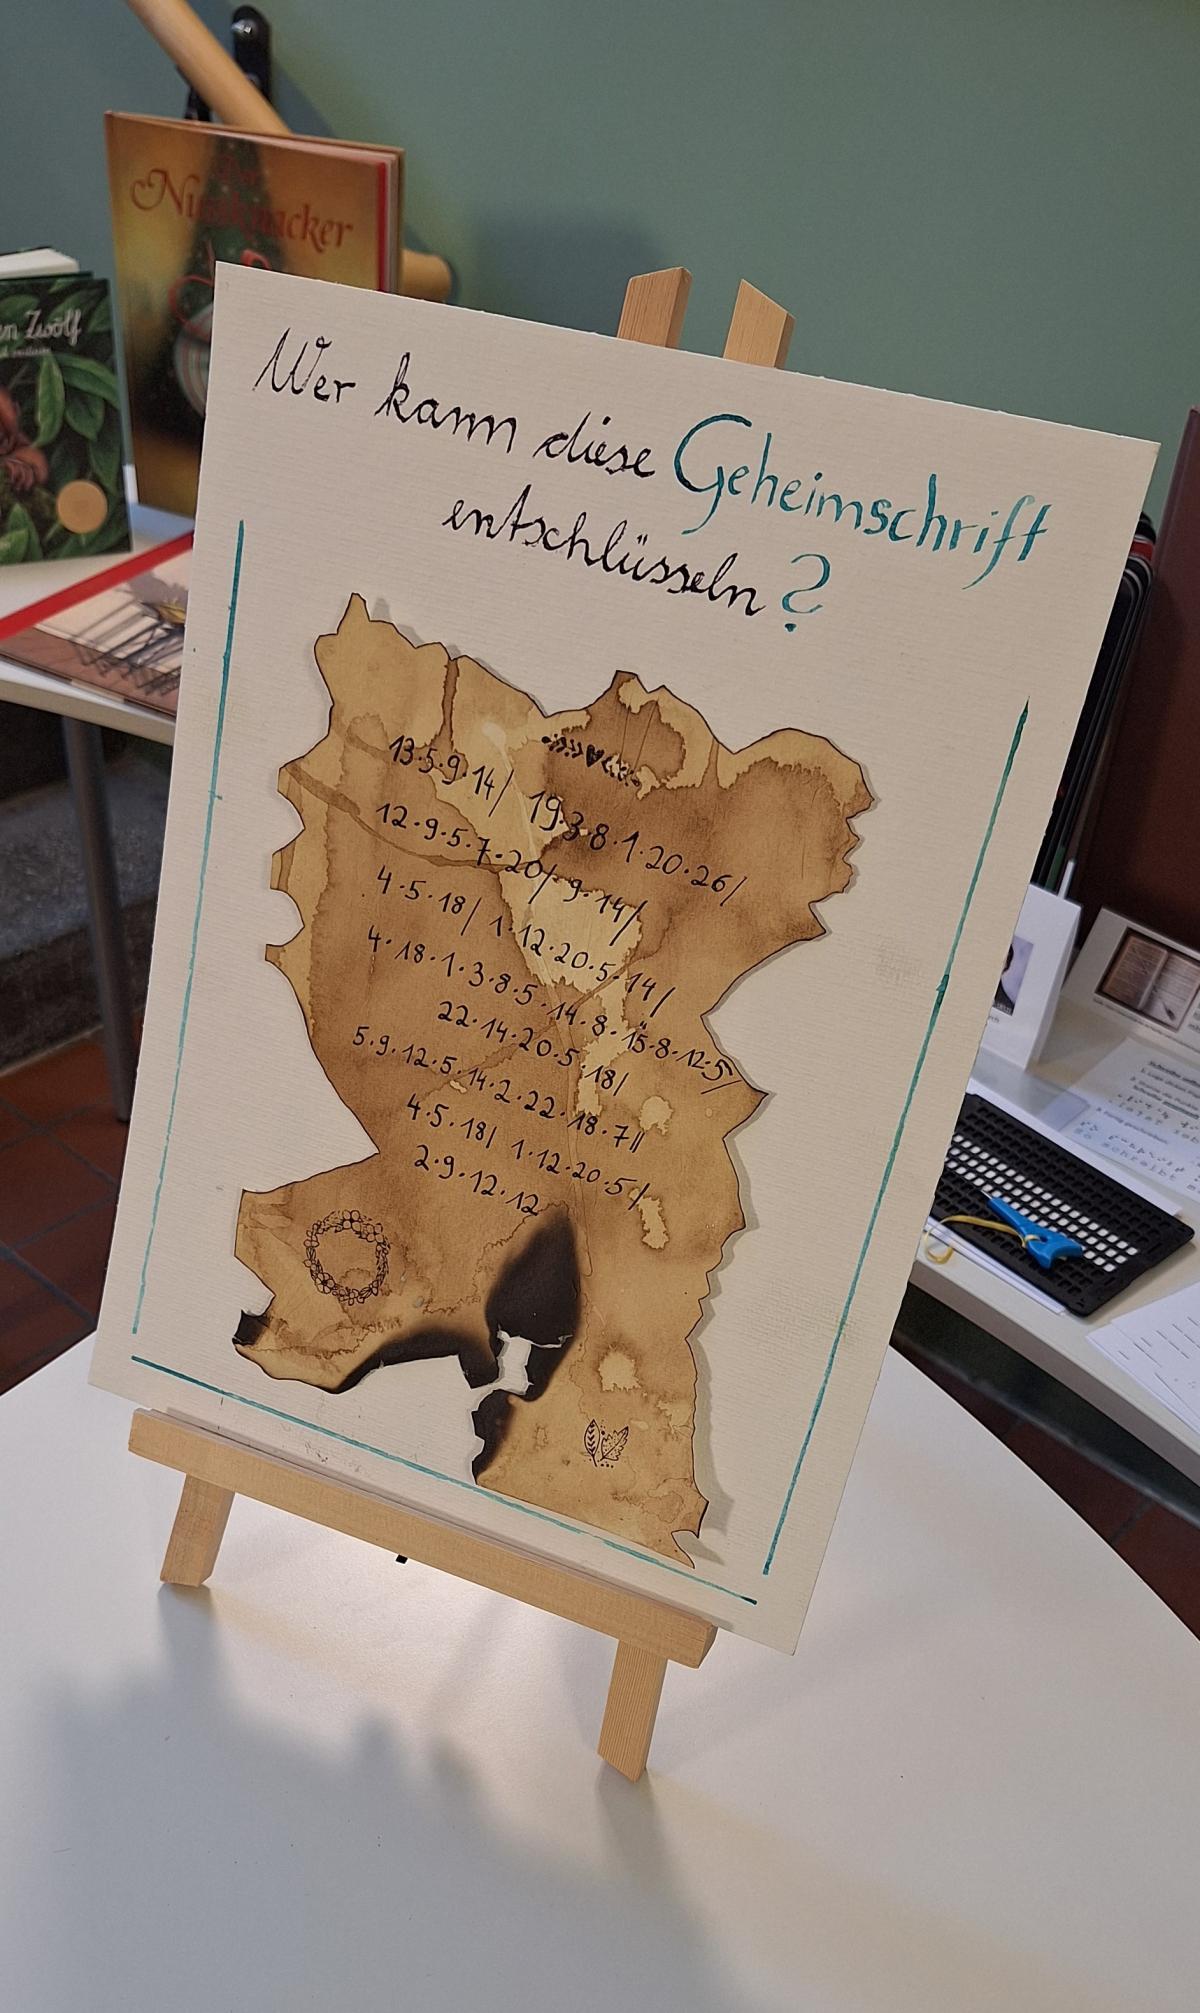 Der
Nussknacker
n Zwölf
Wer kann diese Geheimschrift
entschlüsseln?
13·5·9·14/ 19·3·8·1·20·26/
12·9·5·7·20/ 9·14/
4·5·18/ 1·12·20·5·14/
4·18·1·3·8·5·14·8·15̈·8·12·5/
22·14·20·5·18/
5·9·12·5·14·2·22·18·7//
4·5·18/ 1·12·20·5/
2·9·12·12